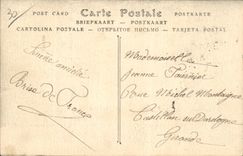 30
POST CARD Carte Postale POSTKARTE
BRIEFKAART — POSTKAART
CARTOLINA POSTALE — ОТКРЫТОЕ ПИСЬМО — TARJETA POSTAL
Sincère amitié
Brise de France
Mademoiselle
Jeanne
Rue Michel Montaigne
Castillon sur Dordogne
Gironde